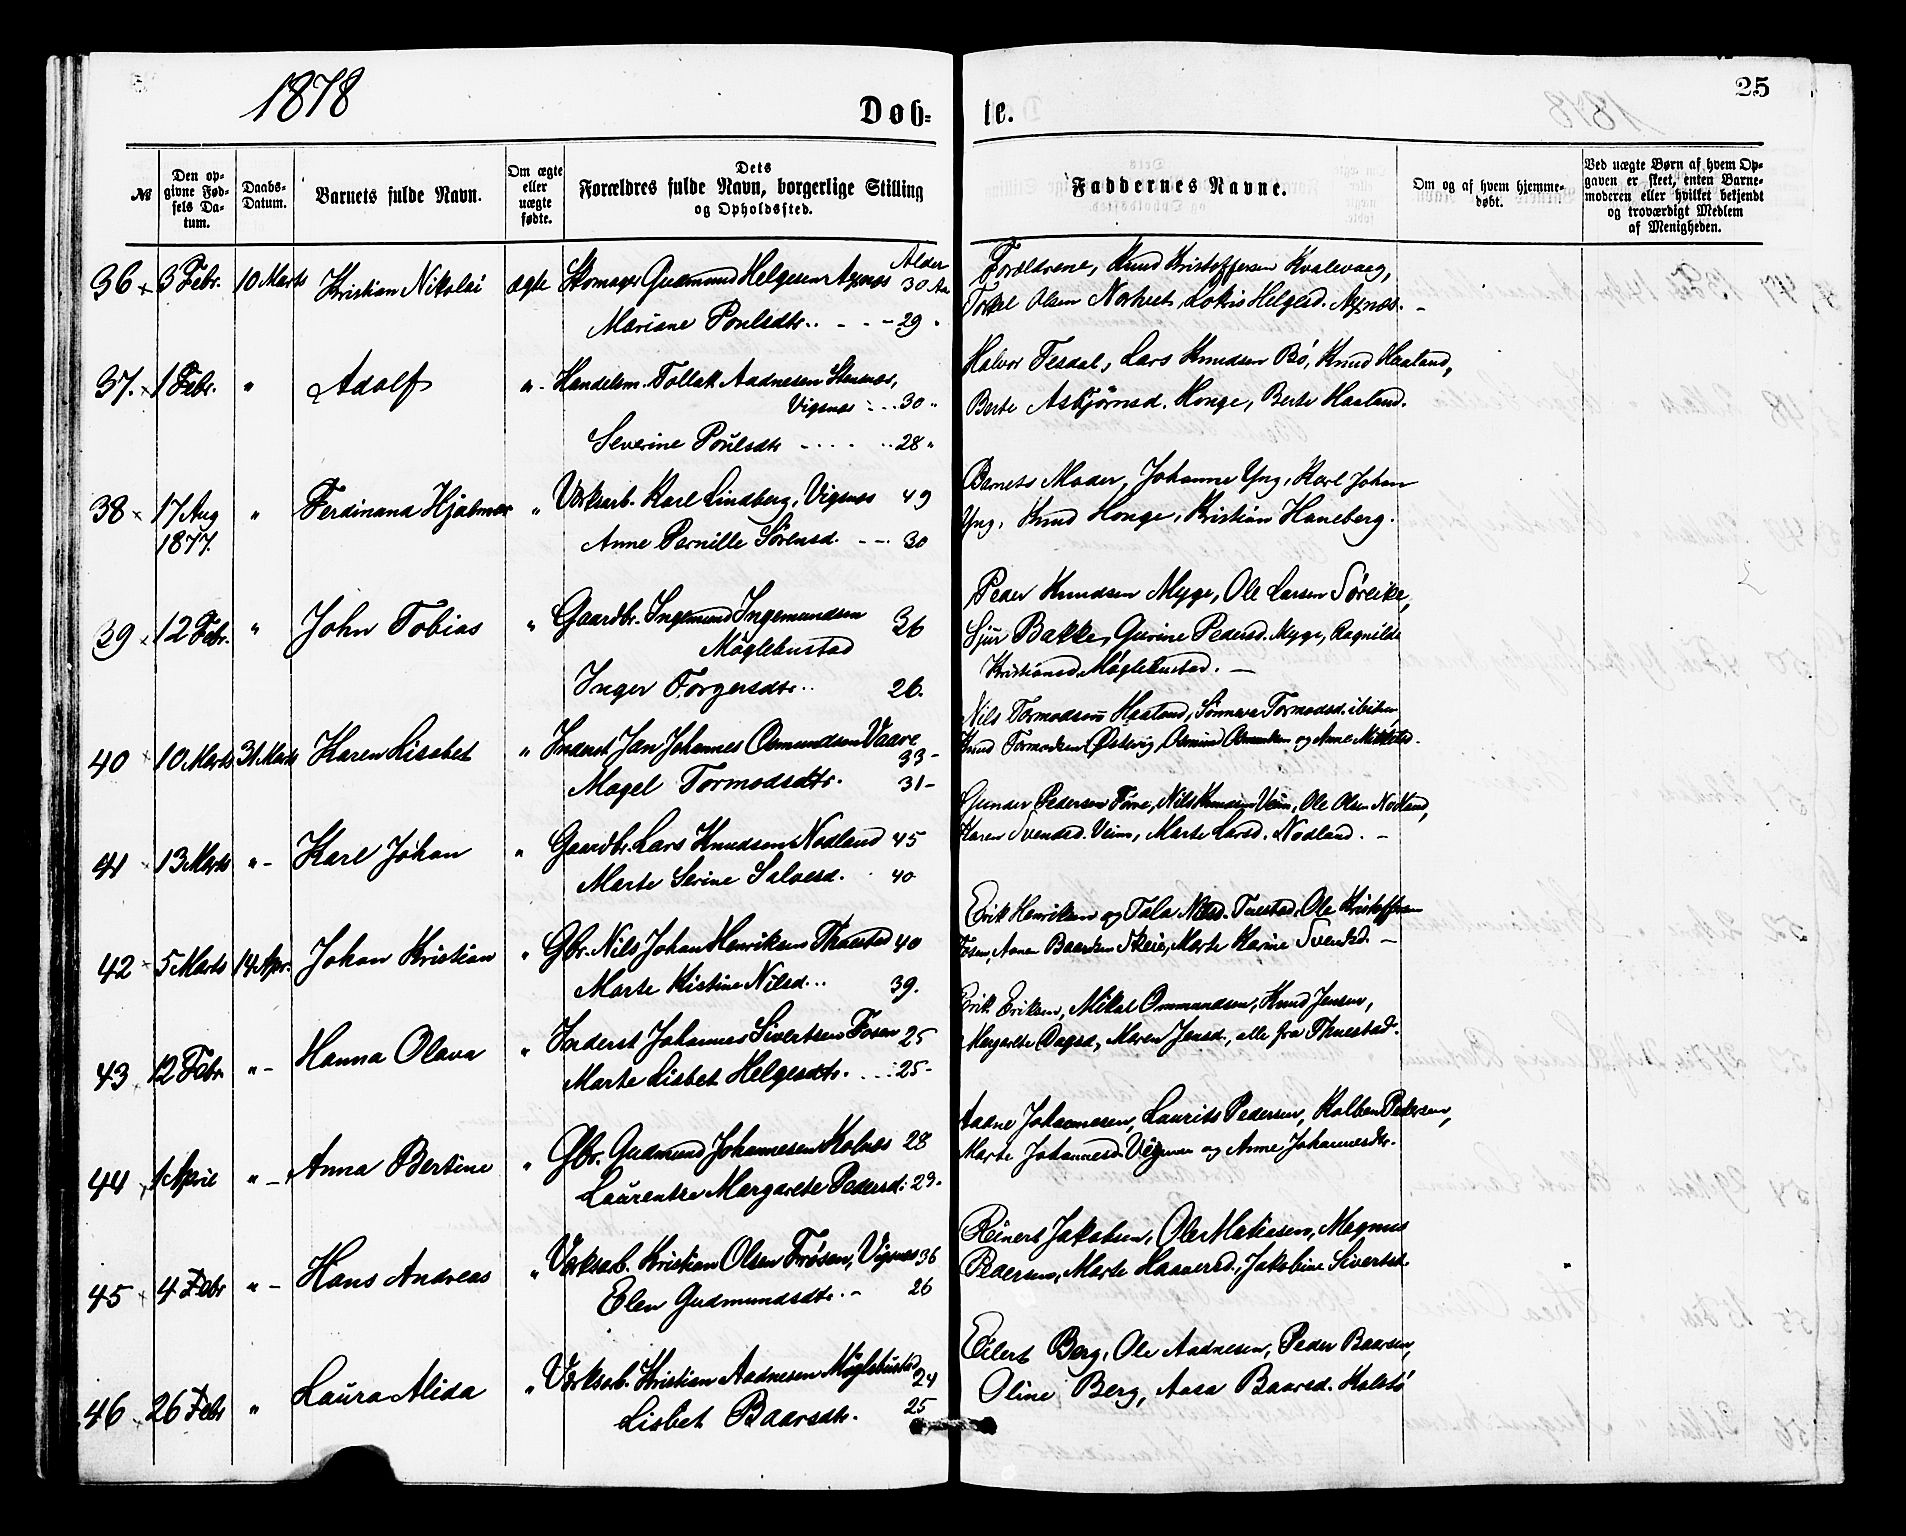 1878
Døb-
te.
25
№
Den op-
givne Fød-
sels Da-
tum.
Daabs-
Datum.
Barnets fulde Navn.
Om ægte
eller
uægte
fødte.
Dets
Forældres fulde Navn, borgerlige Stilling
og Opholdssted.
Faddernes Navne.
Om og af hvem hjemme-
døbt.
Ved uægte Børn af hvem Op-
gaven er skeet, enten Barne-
moderen eller hvilket bekjendt
og troværdigt Medlem
af Menigheden.
Alder
36 3 Febr. 10 Marts Kristian Nikolai ægte Skomager Gudmund Helgesen 30 Aar
Mariane Poulsdtr. 29 "
Forældrene, Knud Kristoffersen Kvalevaag,
Torkel Olsen Helgesd.
37. 1 Febr. " Adolf " Handelsm. Tollak Aadnesen Stensnes,
Vigsnes 30 "
Severine Poulsdtr 28 "
Halvor Tesdal, Lars Knudsen Bö, Knud Haaland,
Berte Asbjörnsd. Honge, Berte Haaland.
38 17 Aug " Ferdinand Hjalmar " Værksarb. Karl Lindberg, Vigsnes 49
1877.
Anne Pernille Sörensd. 30
Barnets Moder, Johanne Yng, Karl Johan
Yng, Knud Honge, Kristian Haneberg.
39 12 Febr. " John Tobias " Gaardbr. Ingemund Ingemundsen 36
Møglebustad
Inger Torgersdtr. 26.
Peder Knudsen Myge, Ole Larsen Søreike,
Sjur Bakke, Gurine Pedersd. Myge, Ragnilde
Kristiansd. Møglebustad. —
40 10 Marts 31 Marts Karen Lisabet " Inderst Jan Johannes Osmundsen Vaare
33 -
Magel Tormodsdtr. 31 -
Nils Tormodsen Haaland, Sönneva Tormodsd. ibiden
Knud Tormodsen Østevig, Osmund Osmundsen og Anne
41 13 Marts " - Karl Johan " Gaardbr. Lars Knudsen Nodland 45
Marte Serine Salvesd. 40
Gunder Pedersen Nils Knudsen Veim, Ole Olsen Nodland,
Karen Svendsd. Veim, Marte Larsd. Nodland. -
42 5 Marts 14 Apr. Johan Kristian " Gbr. Nils Johan Henriksen Thuestad 40
Marte Kistine Nilsd... 39.
Erik Henriksen og Tala Nilsd. Tuestad, Ole Kristoffersen
Fosen, Baardsen Skeie, Marte Karine Svendsd. —
43 12 Febr " - Hanna Olava " Inderst Johannes Sivertsen Fosen 25
Marte Lisbet Helgesdtr. 25 -
Erik Eriksen, Mikal Ommundsen, Knud Jensen,
Margarete Dagsd, Maren Jensd., alle fra Thuestad.
44 1 April " - Anna Bertine " Gbr. Gudmund Johannesen Kolnes 28
Laurentse Margarete Pedersd: 29 -
Aadne Johannesen, Laurits Pedersen, Kolben Pedersen,
Marte Johannesd. og Anne Johannesdtr.
45 4 Febr " - Hans Andreas " Værksarb. Kristian Olsen Frøsen, Vigsnes 36
Elen Gudmundsdtr. 26
Reinert Jakobsen, Ole Matiasen, Magnus
Pedersen, Marte Haaversd., Jakobine Sivertsd.
46 26 Febr " Laura Alida " Værksarb. Kristian Aadnesen Møglebustad
24
Lisbet Baarsdtr. 25
Eilert Berg, Ole Aadnesen, Peder Baarsen,
Oline Berg, Aasa Baarsd. Kolstö